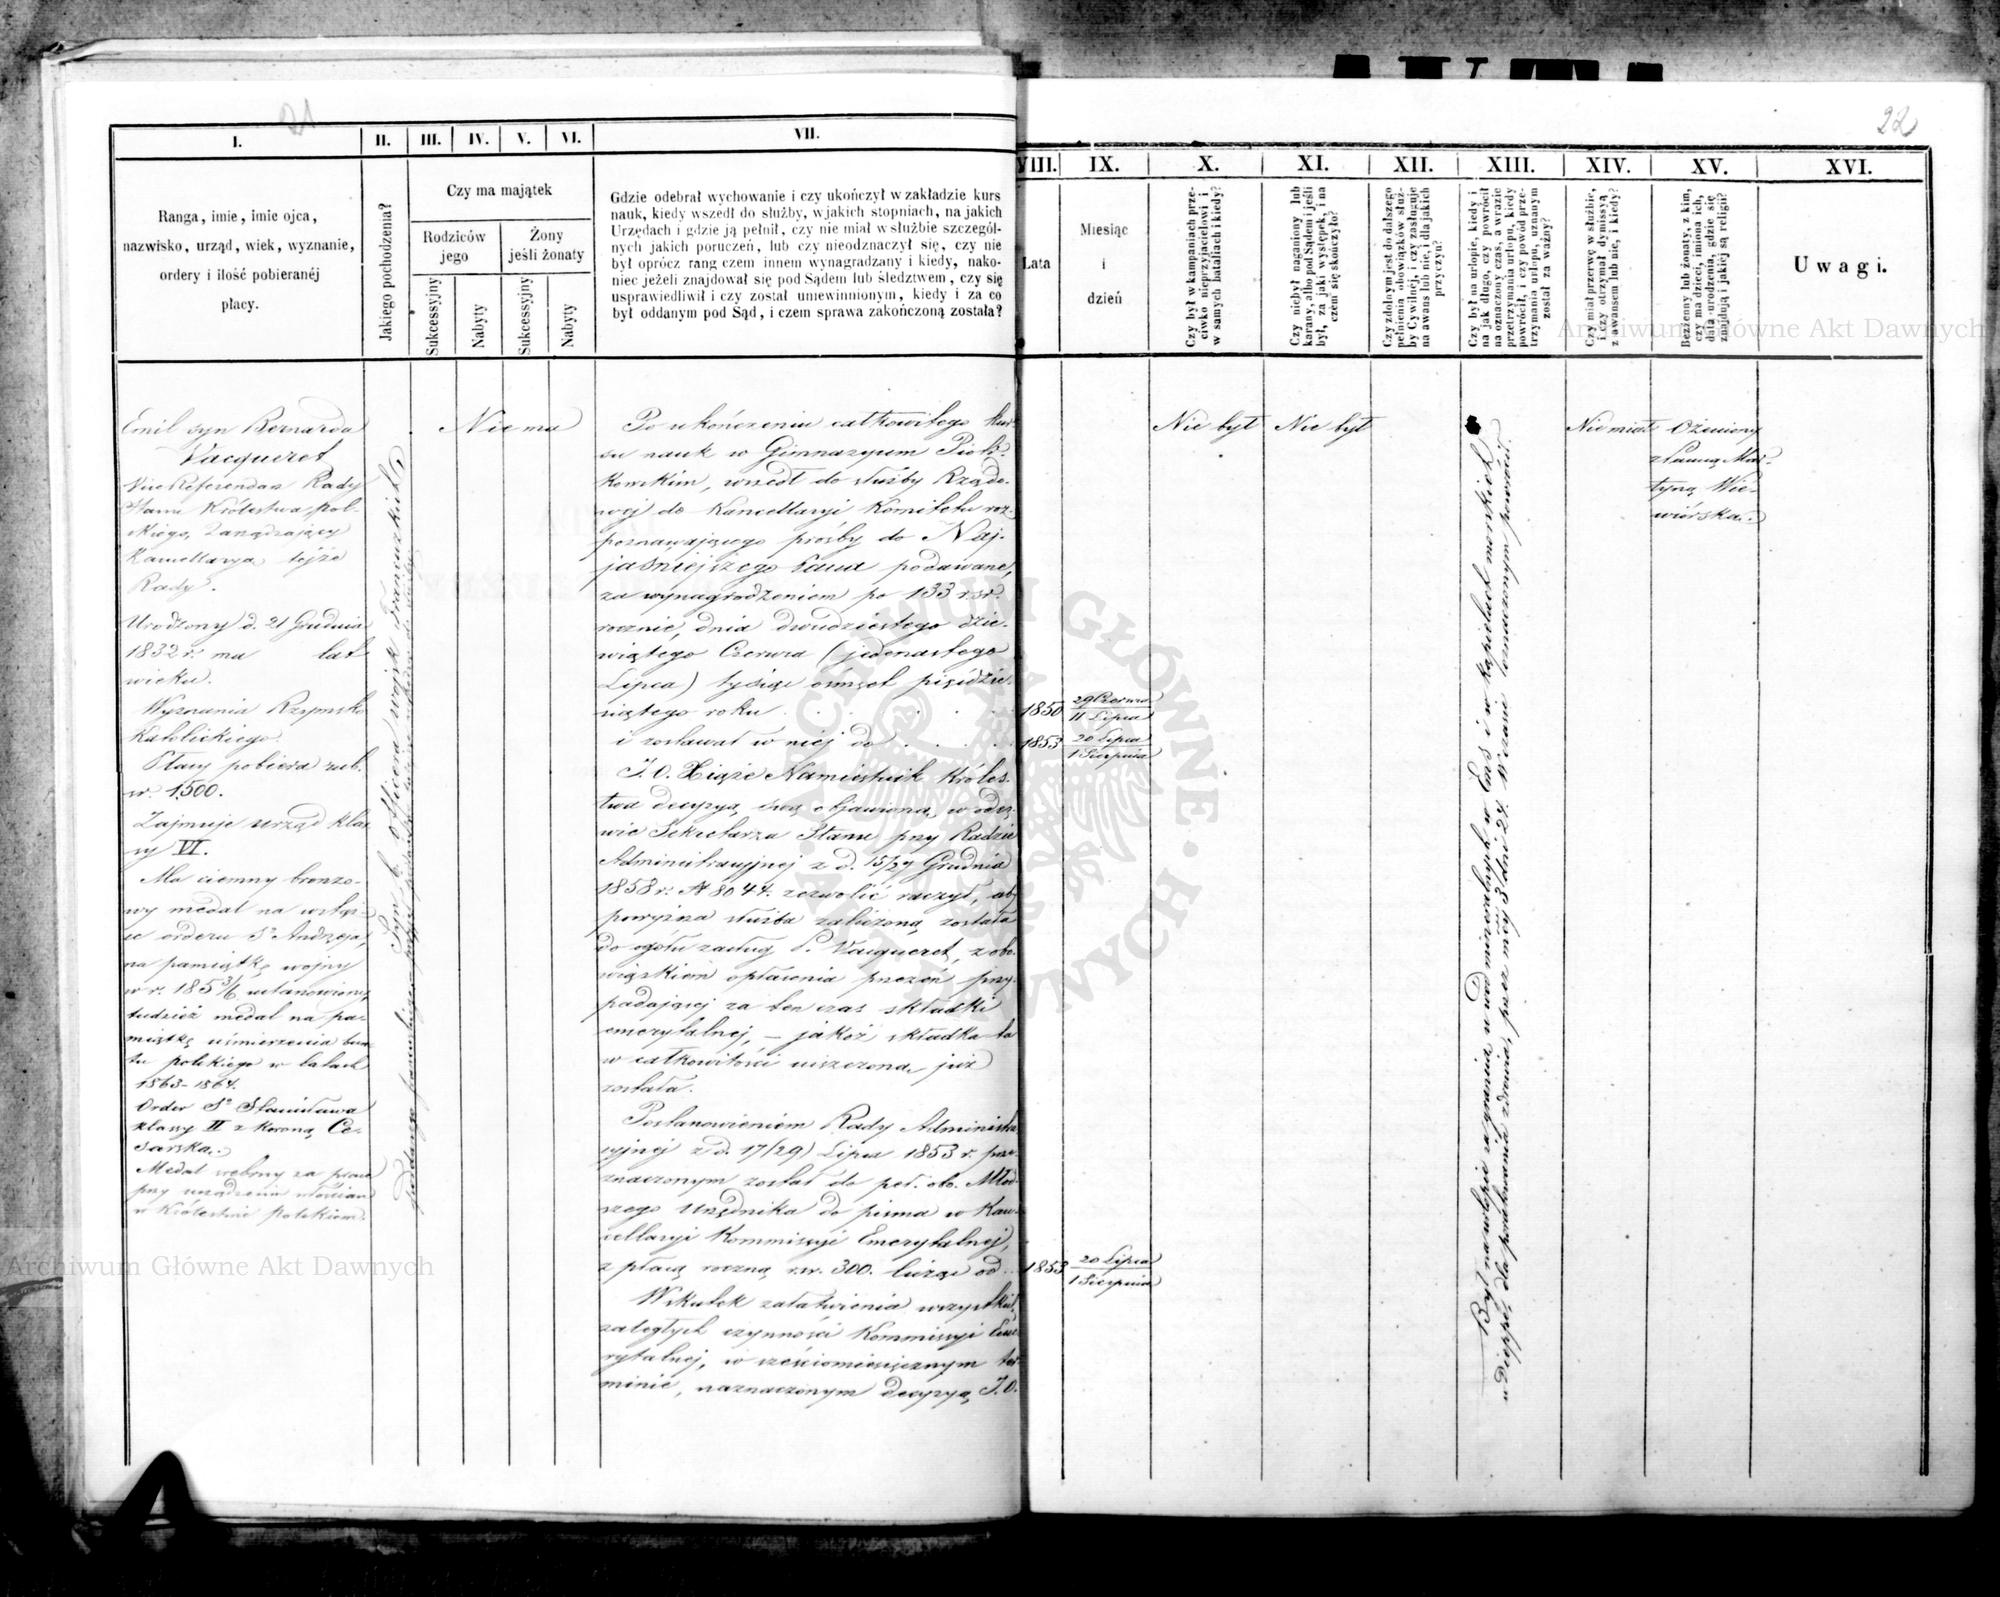 21
22
I.
II.
III.
IV.
V.
VI.
VII.
VIII.
IX.
X.
XI.
XII.
XIII.
XIV.
XV.
XVI.
Ranga, imie, imie ojca,
nazwisko, urząd, wiek, wyznanie,
ordery i ilość pobieranéj
płacy.
Jakiego pochodzenia?
Czy ma majątek
Rodziców
jego
Żony
jeśli żonaty
Sukcessyjny
Nabyty
Sukcessyjny
Nabyty
Gdzie odebrał wychowanie i czy ukończył w zakładzie kurs
nauk, kiedy wszedł do służby, w jakich stopniach, na jakich
Urzędach i gdzie ją pełnił, czy nie miał w służbie szczegól-
nych jakich poruczeń, lub czy nieodznaczył się, czy nie
był oprócz rang czem innem wynagradzany i kiedy, nako-
niec jeżeli znajdował się pod Sądem lub śledztwem, czy się
usprawiedliwił i czy został uniewinnionym, kiedy i za co
był oddanym pod Sąd, i czem sprawa zakończoną została?
Lata
Miesiąc
i
dzień
Czy był w kampaniach prze-
ciwko nieprzyjacielowi i
w samych bataliach i kiedy?
Czy niebył naganiony lub
karany, albo pod Sądem i jeśli
był, za jaki występek, i na
czem się skończyło?
Czy zdolnym jest do dalszego
pełnienia obowiązków służ-
by Cywilnej, i czy zasługuje
na awans lub nie, i dla jakich
przyczyn?
Czy był na urlopie, kiedy i
na jak długo, czy powrócił
na oznaczony czas, a w razie
przetrzymania urlopu, kiedy
powrócił, i czy powód prze-
trzymania urlopu, uznanym
został za ważny?
Czy miał przerwę w służbie,
i czy otrzymał dymissyą
z awansem lub nie, i kiedy?
Bezżenny lub żonaty, z kim,
czy ma dzieci, imiona ich,
data urodzenia, gdzie się
znajdują i jakiéj są religii?
Uwagi.
Emil syn Bernarda
Vacqueret
Vice Referendarz Rady
Stanu Królestwa Pol-
skiego, Zarządzający
Kancellaryą tejże
Rady.
Urodzony d. 21 Grudnia
1832 r. ma lat
wieku.
Wyznania Rzymsko
Katolickiego.
Płacy pobiera rub.
sr. 1,500.
Zajmuje urząd klas-
sy VI.
Ma ciemny bronzo-
wy medal na wstęż-
ce orderu Sº Andrzeja,
na pamiątkę wojny
w r. 185 3/6 ustanowiony,
tudzież medal na pa-
miątkę uśmierzenia bun-
tu polskiego w latach
1863-1864.
Order Sº Stanisława
klassy II z Koroną Ce-
sarską.
Medal srebrny za prace
przy urządzeniu włościan
w Królestwie Polskiem.
Syn b. Officera wojsk Francuzkich,
Nie ma
Po ukończeniu całkowitego kur-
su nauk w Gimnazyum Piotr-
kowskim, wszedł do służby Rządo-
wej do Kancellaryi Komitetu roz-
poznawającego prośby do Naj-
jaśniejszego Pana podawane,
za wynagrodzeniem po 133 r.sr.
rocznie, dnia dwudziestego dzie-
wiątego Czerwca (jedenastego
Lipca) tysiąc ośmset pięćdzie-
siątego roku
i zostawał w niej do
J. O. Xiąże Namiestnik Króles-
twa decyzyą swą objawioną w odez-
wie Sekretarza Stanu przy Radzie
Administracyjnej z d. 15/27 Grudnia
1858 r. № 8044. zezwolić raczył, aby
powyższa służba zaliczoną została
do ogółu zasług P. Vacqueret, z obo-
wiązkiem opłacenia przezeń przy-
padającej za ten czas składki
emerytalnej, – jakoż składka ta
w całkowitości uiszczoną już
została.
Postanowieniem Rady Administra-
cyjnej z d. 17/29) Lipca 1853 r. prze-
znaczonym został do peł. obo. Młod-
szego Urzędnika do pisma w Kan-
cellaryi Kommissyi Emerytalnej,
z płacą roczną r.sr. 300. licząc od
Wskutek załatwienia wszystkich
zaległych czynności Kommissyi Eme-
rytalnej, w sześciomiesięcznym ter-
minie, naznaczonym decyzyą J. O.
1850 29 Czerwca
11 Lipca
1853 20 Lipca
1 Sierpnia
1853 20 Lipca
1 Sierpnia
Nie był
Nie był
Był na urlopie zagranicą u wód mineralnych w Ems i w kąpielach morskich
w Dieppe, dla poratowania zdrowia, przez mcy 3 dni 27. W czasie oznaczonym powrócił.
Nie miał
Ożeniony
z Panną Mar-
tyną Wie-
wiórską.
Archiwum Główne Akt Dawnych
Archiwum Główne Akt Dawnych
ARCHIWUM GŁÓWNE AKT DAWNYCH